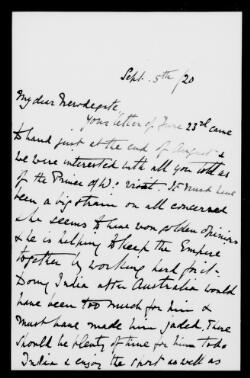 Sept. 5th /20
My dear Newdegate,
Your letter of June 23rd came
to hand just at the end of August &
we were interested with all you told us
of the Prince of W.'s visit. It must have
been a big strain on all concerned
he seems to have won golden opinions
& he is helping to keep the Empire
together by working hard for it.
Doing India after Australia would
have been too much for him &
must have made him jaded. There
should be plenty of time for him to do
India & enjoy the sport as well as